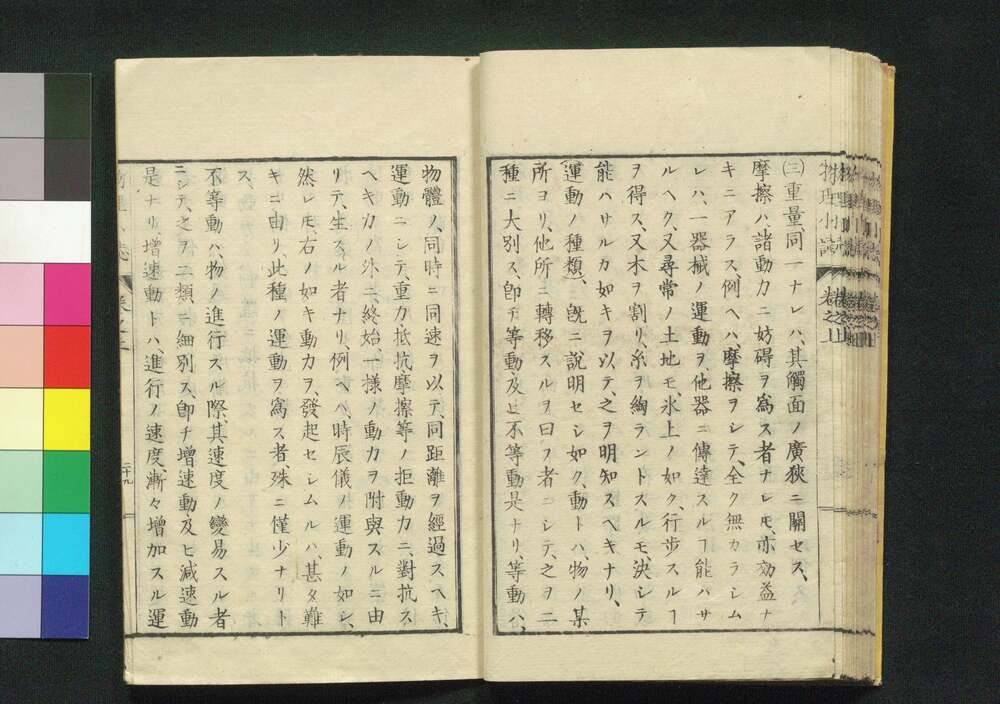 ㊂重量、同一ナレハ、其觸面ノ廣狹ニ關セス、
摩擦ハ諸動力ニ妨碍ヲ爲ス者ナレ𪜈、亦効益ナ
キニアラス、例ヘハ、摩擦ヲシテ、全ク無カラシム
レハ、一器械ノ運動ヲ、他器ニ傳達スルヿ能ハサ
ルヘク、又尋常ノ土地モ、氷上ノ如ク、行歩スルヿ
ヲ得ス、又木ヲ割リ、糸ヲ綯ラントスルモ、決シテ
能ハサルカ如キヲ以テ、之ヲ明知スヘキナリ、
運動ノ種類、 既ニ說明セシ如ク、動トハ、物ノ某
所ヨリ、他所ニ轉移スルヲ曰フ者ニシテ、之ヲ二
種ニ大別ス、卽チ等動、及ヒ不等動是ナリ、等動ハ、
物體ノ、同時ニ同速ヲ以テ、同距離ヲ經過スヘキ、
運動ニシテ、重力抵抗摩擦等ノ拒動力ニ、對抗ス
ヘキカノ外ニ、終始、一樣ノ動力ヲ附與スルニ由
リテ、生スル者ナリ、例ヘハ、時辰儀ノ運動ノ如シ、
然レ𪜈、右ノ如キ動力ヲ、發起セシムルハ、甚タ難
キニ由リ、此種ノ運動ヲ爲ス者、殊ニ僅少ナリト
ス、
不等動ハ、物ノ進行スル際、其速度ノ變易スル者
ニシテ、之ヲ二類ニ細別ス、卽チ增速動及ヒ減速動
是ナリ、增速動トハ、進行ノ速度漸々增加スル運